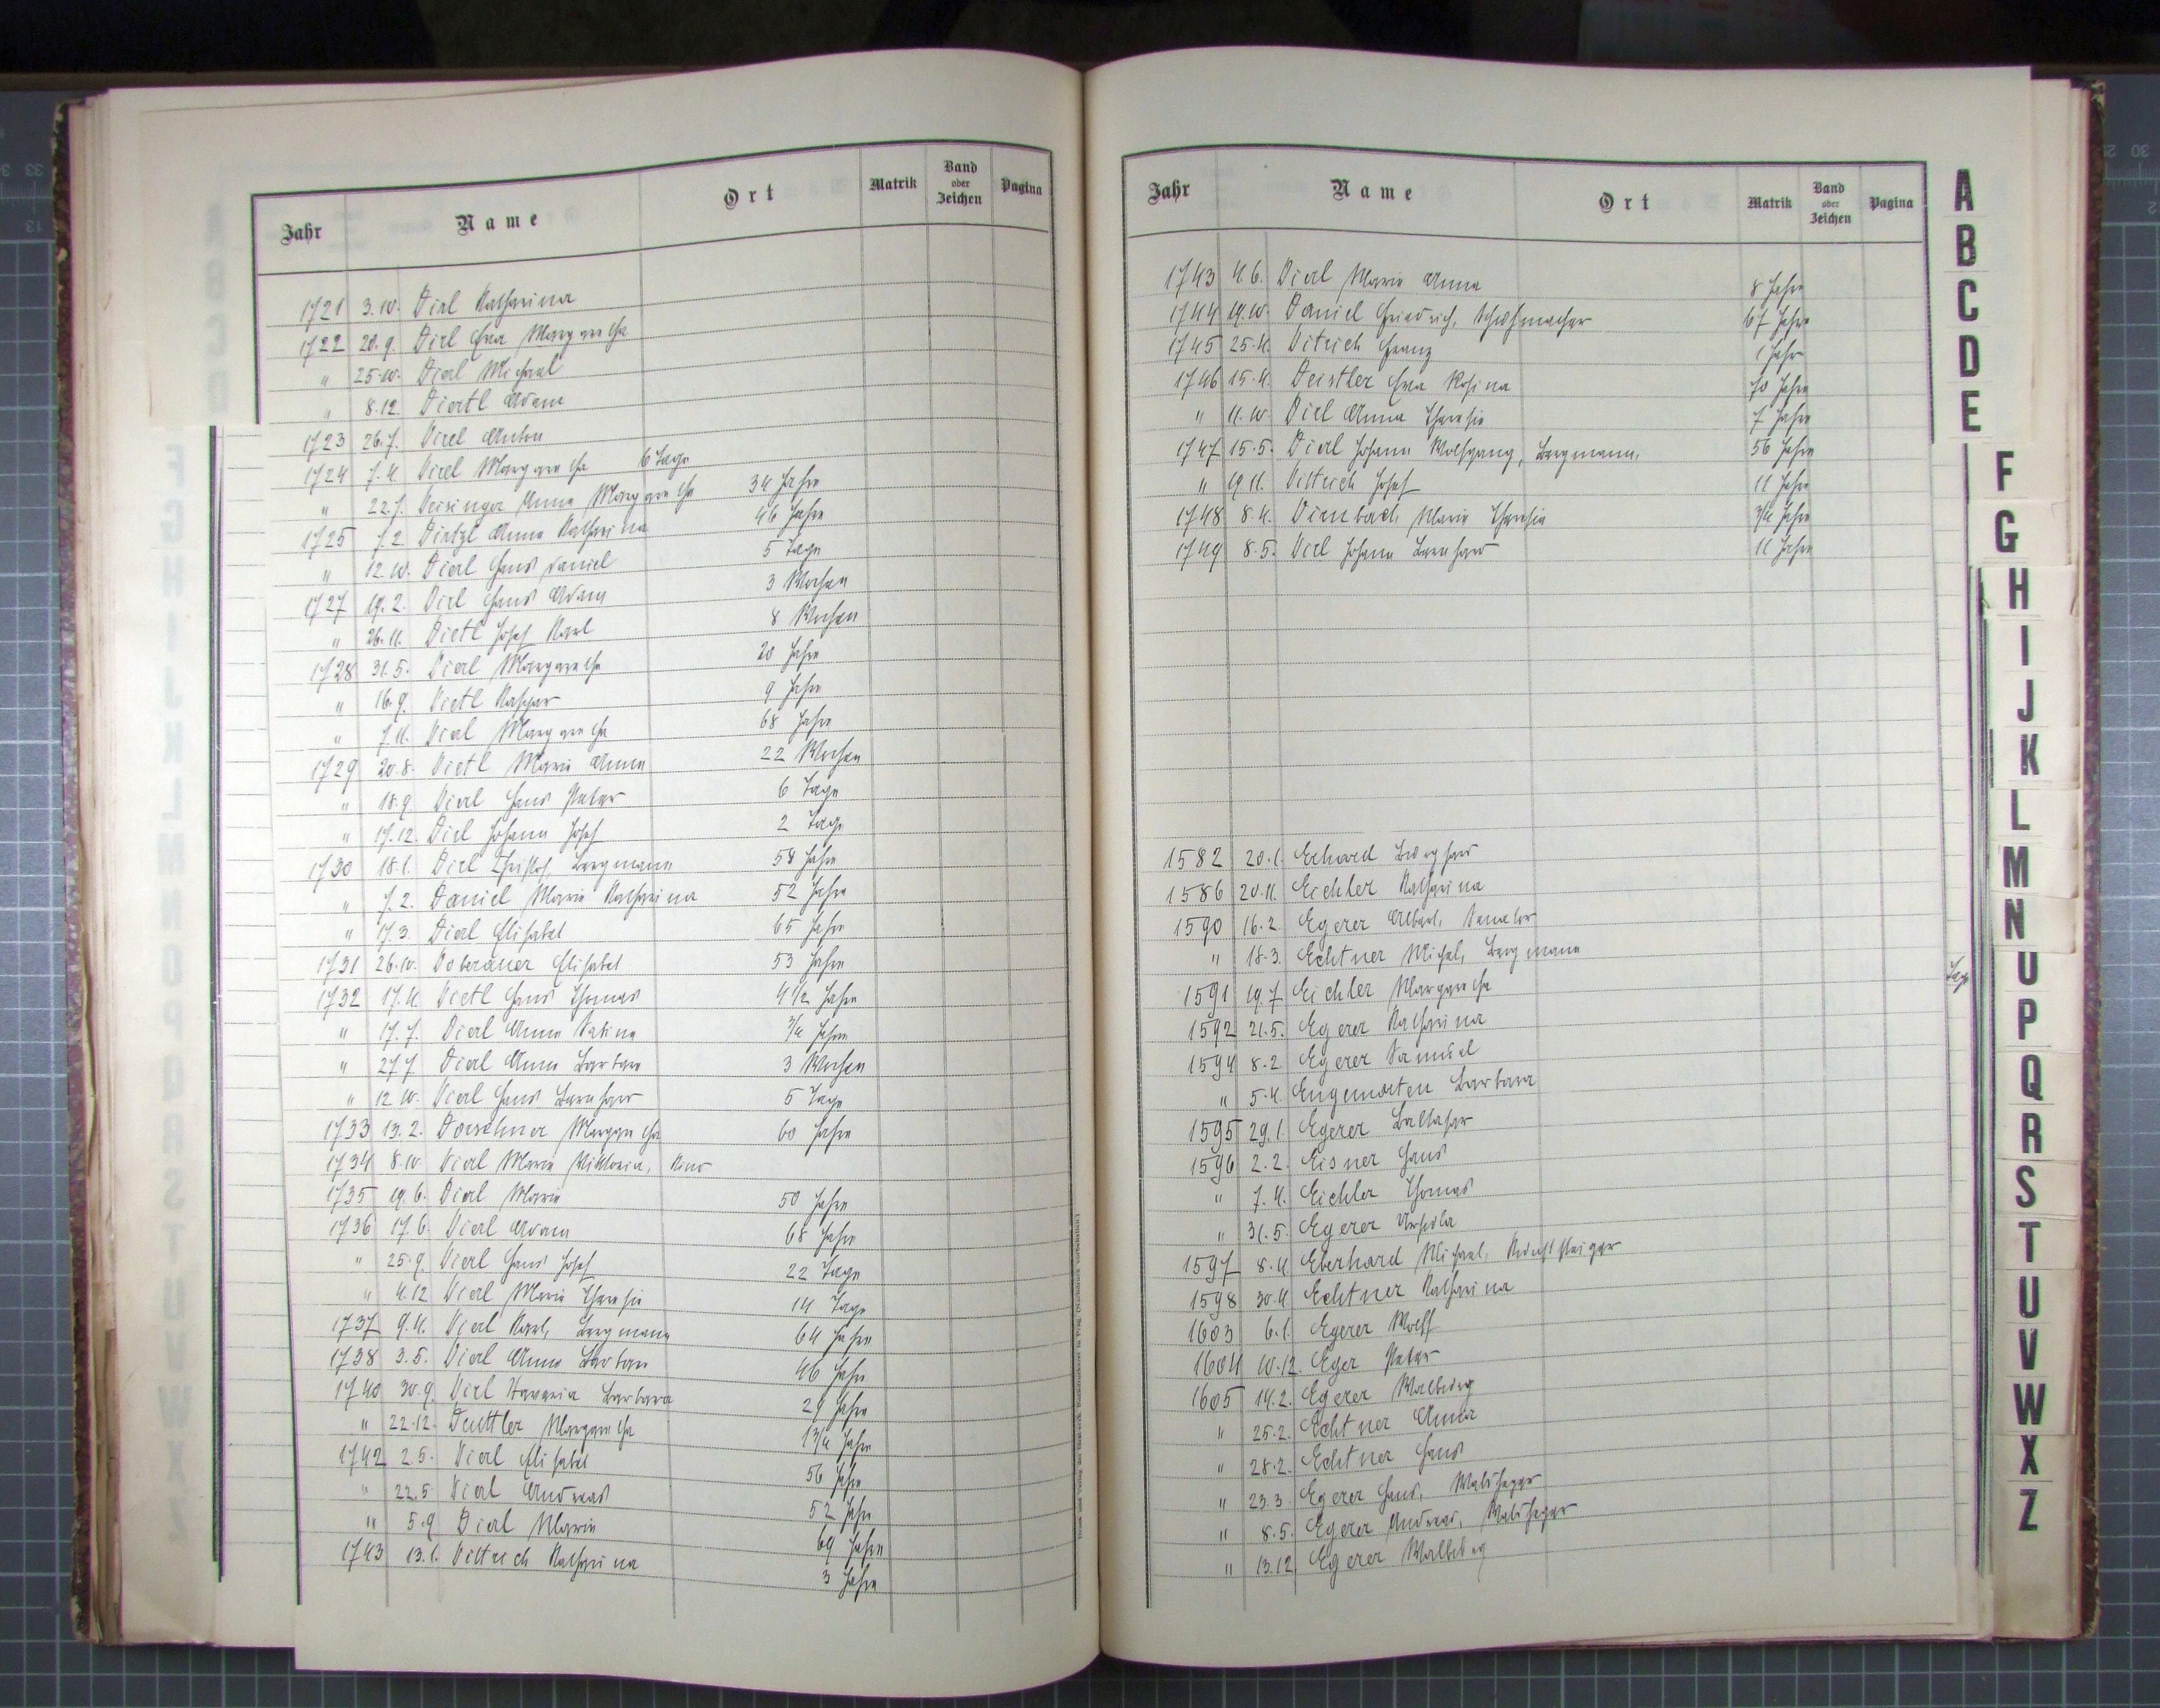 Jahr Name Ort Matrik Band oder Zeichen Pagina
1721 3.10. Dirl Katharina
1722 20.9. Dirl Eva Margaretha
" 25.10. Dierl Michael
" 8.12. Diertl Adam
1723 26.7. Dirl Anton
1724 7.4. Dierl Margaretha 6 Tage
" 22.7. Deisinger Anna Margaretha 34 Jahre
1725 7.2. Anna Katharina 46 Jahre
" 12.10. Dierl Hans Daniel 5 Tage
1727 19.2. Dirl Hans Adam 3 Wochen
" 26.11. Dietl Josef Karl 8 Wochen
1728 31.5. Dierl Margaretha 20 Jahre
" 16.9. Dietl Kaspar 9 Jahre
" 7.11. Dierl Margaretha 68 Jahre
1729 20.8. Dietl Marie Anna 22 Wochen
" 18.9. Dierl Hans Peter 6 Tage
" 17.12. Dirl Johann Josef 2 Tage
1730 18.1. Dirl Christof, Bergmann 58 Jahre
" 7.2. Daniel Marie Katharina 52 Jahre
" 17.3. Dierl Elisabet 65 Jahre
1731 26.10. Doberauer Elisabet 53 Jahre
1732 17.4. Dietl Hans Thomas 4 1/2 Jahre
" 17.7. Dierl Anna Sabina 3/4 Jahre
" 27.7. Dierl Anna Barbara 3 Wochen
" 12.10. Dierl Hans Bernhard 5 Tage
1733 13.2. Dorschner Margaretha 60 Jahre
1734 8.10. Dierl Marie Viktoria, Kind
1735 19.6. Dierl Marie 50 Jahre
1736 17.6. Dierl Adam 68 Jahre
" 25.9. Dierl Hans Josef 22 Tage
" 4.12. Dierl Marie Theresia 14 Tage
1737 9.4. Dierl Karl, Bergmann 64 Jahre
1738 3.5. Dierl Anna Barbara 46 Jahre
1740 30.9. Dirl Barbara 29 Jahre
" 22.12. Deuttler Margaretha 1 3/4 Jahre
1742 2.5. Dierl Elisabet 56 Jahre
" 22.5. Dierl Andreas 52 Jahre
" 5.9. Dierl Marie 69 Jahre
1743 13.1. Dittrich Katharina 3 Jahre
Jahr Name Ort Matrik Band oder Zeichen Pagina
1743 4.6. Dierl Marie Anna 8 Jahre
1744 19.10. Daniel Friedrich, Schuhmacher 67 Jahre
1745 25.4. Ditrich Franz 1 Jahr
1746 15.4. Deistler Eva Rosina 70 Jahre
" 11.10. Dirl Anna Theresia 7 Jahre
1747 15.5. Dierl Johann Wolfgang, Bergmann, 56 Jahre
" 19.11. Dittrich Josef 11 Jahre
1748 8.4. Marie Theresia 3/4 Jahre
1749 8.5. Dirl Johann Bernhard 11 Jahre
1582 20.1. Erhard Burghard
1586 20.11. Eichler Katharina
1590 16.2. Egerer Albert, Senator
" 18.3. Echtner Michel, Bergmann
1591 19.7. Eichler Margaretha
1592 21.5. Egerer Katharina
1594 8.2. Egerer Samuel
" 5.4. Barbara
1595 29.1. Egerer Baltasar
1596 2.2. Eisner Hans
" 7.4. Eichler Thomas
" 31.5. Egerer Ursula
1597 8.4. Eberhard Michael, Kunststeiger
1598 30.4. Echtner Katharina
1603 6.1. Egerer Wolff
1604 10.12. Eger Peter
1605 14.2. Egerer Walburg
" 25.2. Echtner Anna
" 28.2. Echtner Hans
" 23.3. Egerer Hans, Waldheger
" 8.5. Egerer Andreas, Waldheger
" 13.12. Egerer Walburg
A
B
C
D
E
F
G
H
I
J
K
L
M
N
U
P
Q
R
S
T
U
V
W
X
Z